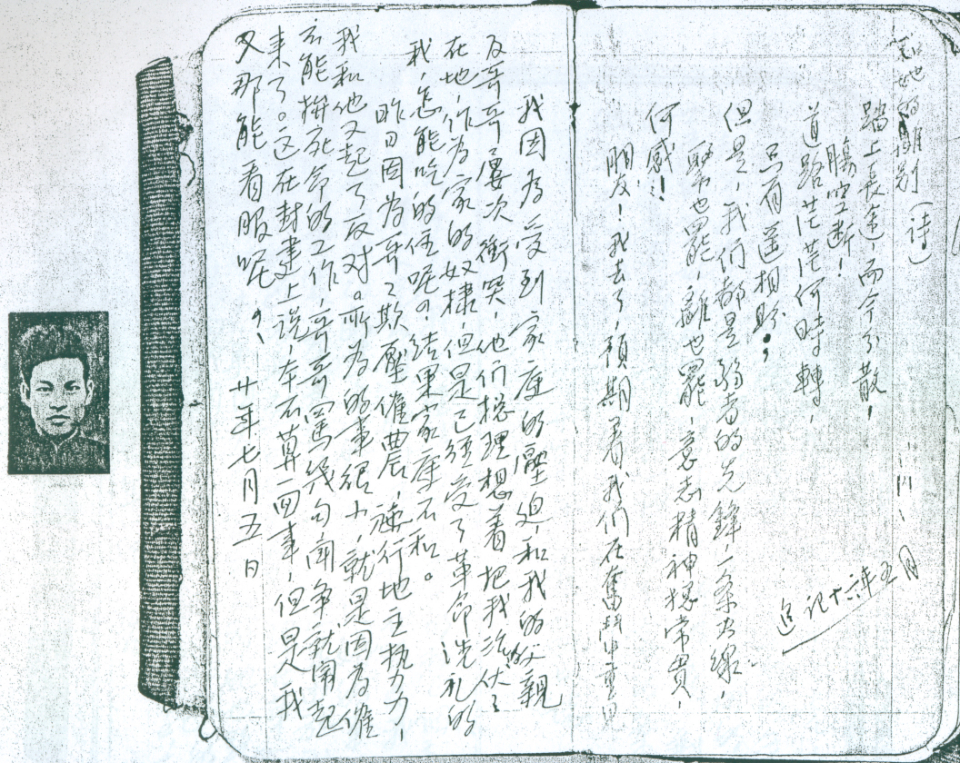 和她的離别（詩）
踏上長途，而今分散，
腸空断！
道路茫茫何時轉，
只有遥相盼。
但是，我们都是弱者的先鋒，一条大線，
聚也罷，離也罷，意志精神總常貫，
何感！
朋友！我去了，預期着我们在奮鬥中重見
追记十六年五月
我因为受到家庭的壓迫，和我的父親
及哥哥屢次衝突，他们總理想着把我
在地，作为家的奴隸，但是已经受了革命洗礼的
我，怎能吃的住呢？结果家庭不和。
昨日因为哥々欺壓傕農，施行地主執力，
我和他又起了反对。所为的事很小，就是因为傕
不能拚死命的工作，哥哥罵幾句閙争就閙起
来了。这在封建上说，本不算一回事，但是我
又那能看服呢？
廿年七月五日